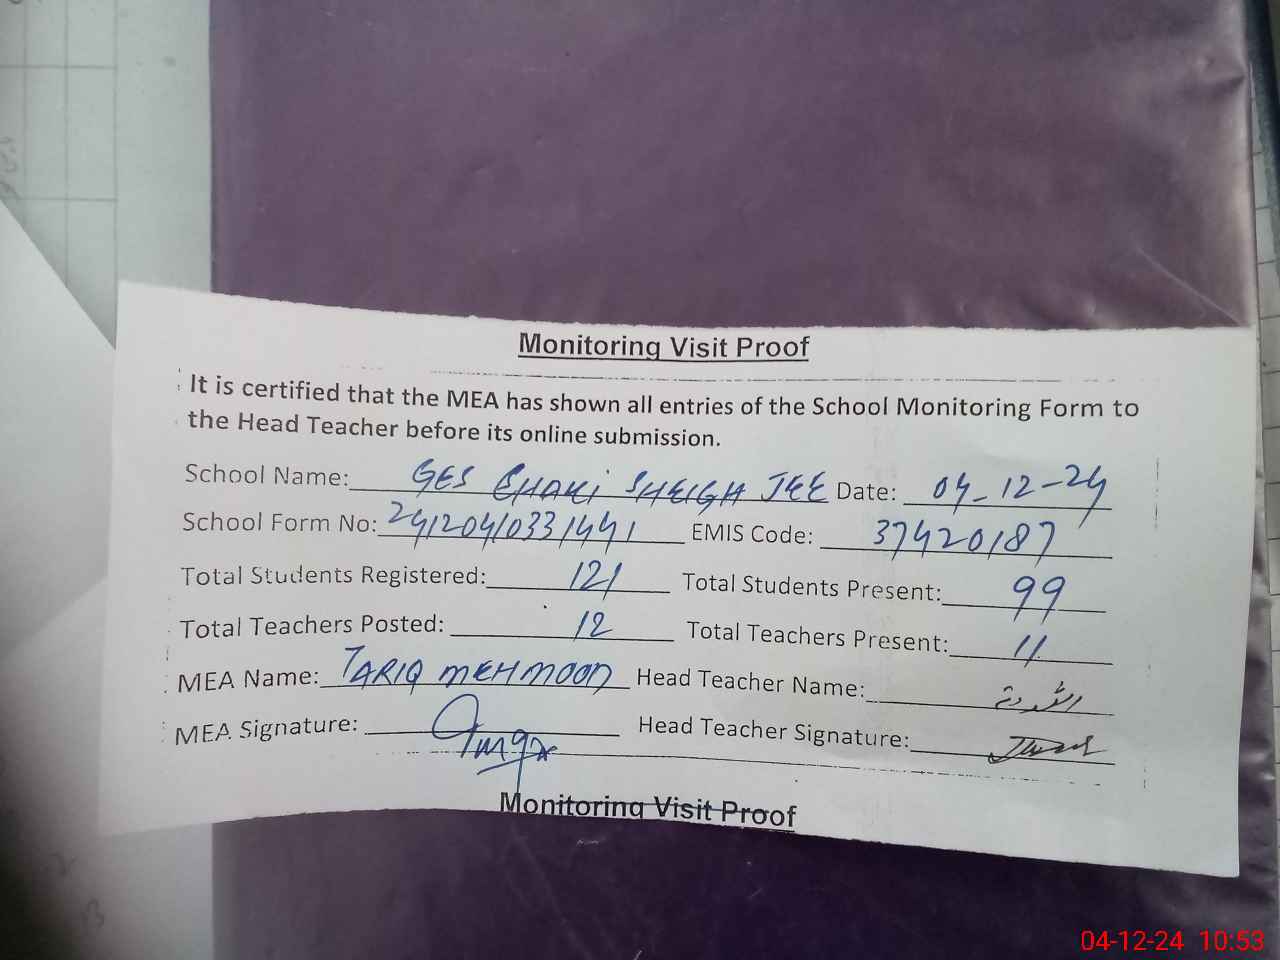 Monitoring Visit Proof
It is certified that the MEA has shown all entries of the School Monitoring Form to
the Head Teacher before its online submission.
School Name: GES CHAKI SHEIGH JEE Date: 04-12-24
School Form No: 24120410331441 EMIS Code: 37420187
Total Students Registered: 121 Total Students Present: 99
Total Teachers Posted: 12 Total Teachers Present: 11
MEA Name: TARIQ MEHMOOD Head Teacher Name:
MEA Signature: Head Teacher Signature:
Monitoring Visit Proof
04-12-24 10:53